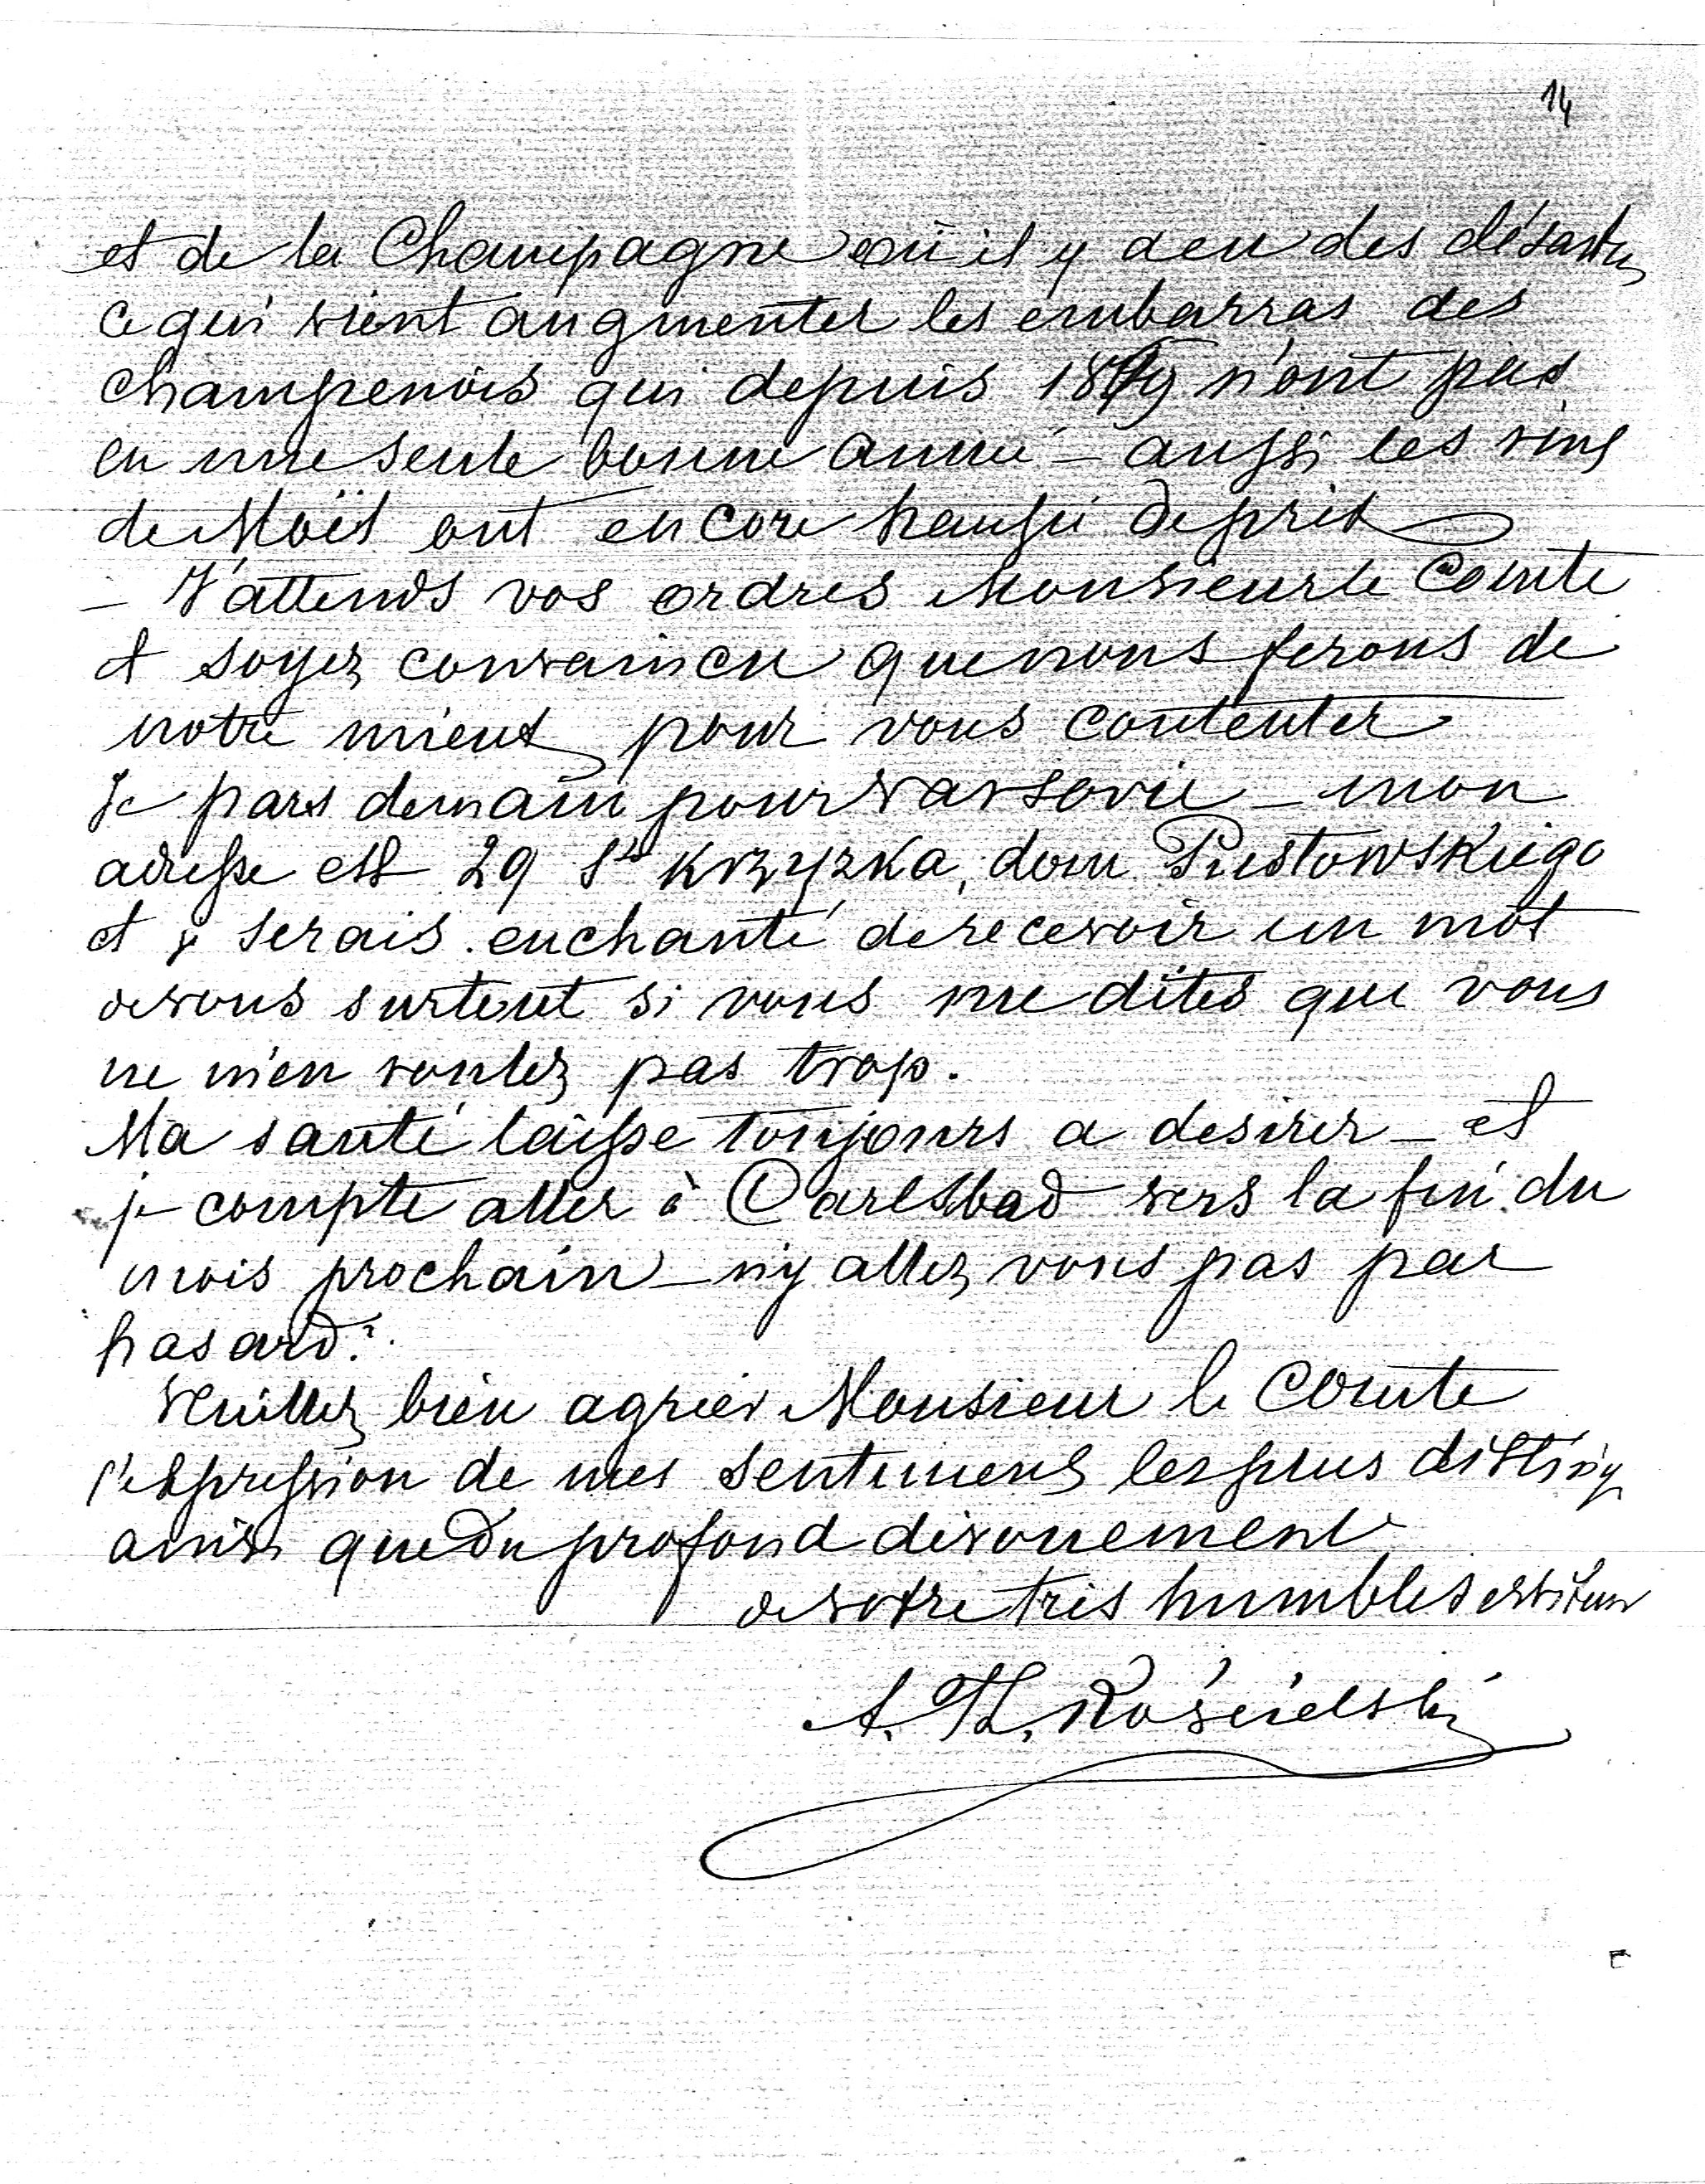 14
et de la Champagne où il y a eu des désastres
ce qui vient augmenter les embarras des
champenois qui depuis 1879 n'ont pas
eu une seule bonne année – aussi les vins
de Moët ont encore haussé de prix
– J'attends vos ordres Monsieur le Comte
et soyez convaincu que nous ferons de
notre mieux pour vous contenter
Je pars demain pour Varsovie – mon
adresse est 29 Sto Krzyzka, dom
et je serais enchanté de recevoir un mot
de vous surtout si vous me dites que vous
ne m'en voulez pas trop.
Ma santé laisse toujours a desirer – et
je compte aller à Carlsbad vers la fin du
mois prochain – n'y allez vous pas par
hasard?
Veuillez bien agréer Monsieur le Comte
l'expression de mes sentimens les plus disting
ainsi que du profond dévouement
de votre très humble serviteur
A. Th. Kościelski